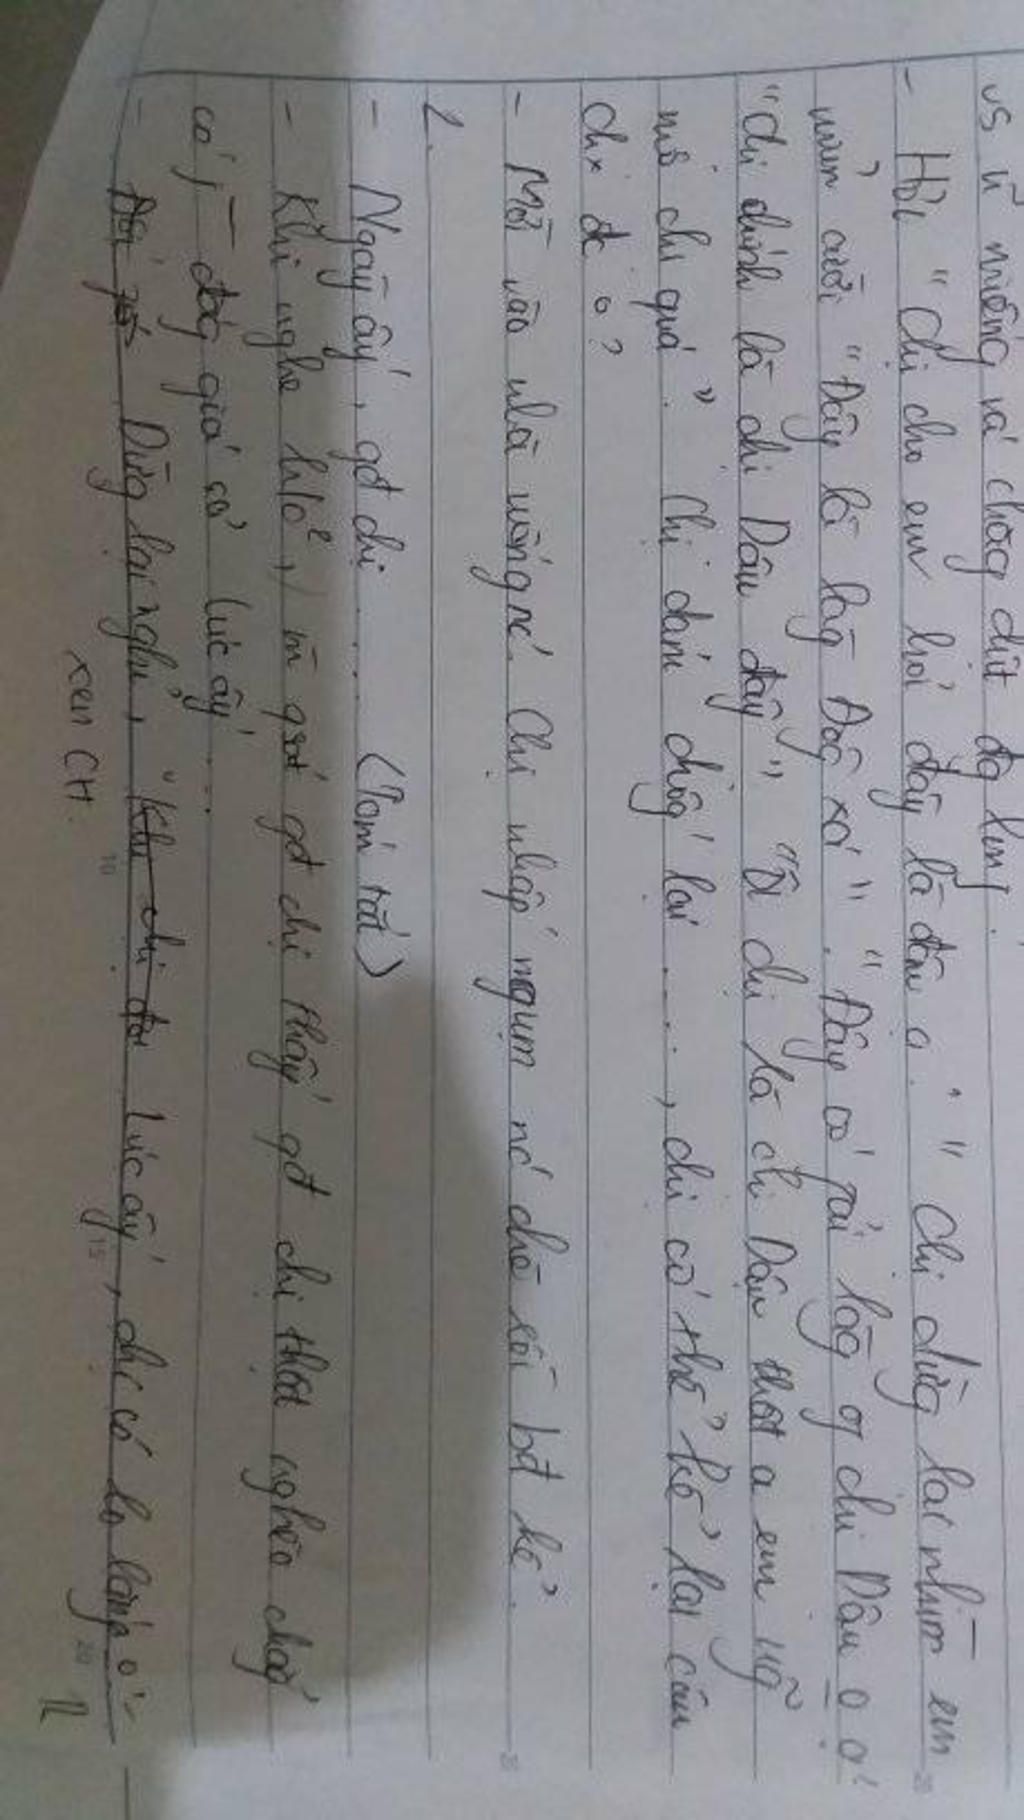 vs ũ miếng vá chag dứt đg lưng.
- Hỏi "Chị cho em hỏi đây là đâu ạ." Chị dừng lại nhìn em
mỉm cười "Đây là làg Đôg xá". "Đây có phải làg ơ chị Dậu o ạ
"chị chính là chị Dậu đây" "Ôi chị là chị Dậu thật a em ngữ
mộ chị quá". Chị đám chốg lại ...., chị có thể kể lại câu
chx đc o?
- Mời vào nhà uống nc. Chị nhấp ngụm nc chè rồi bđ kể.
2.
- Ngày ấy, gđ chị ..... (Tóm tắt)
- Khi nghe kể, m gđ chị thấy gđ chị thật nghèo cháo
có, đóg giá cả lúc ấy ...
- Dừg lại nghỉ, "Khi chị đg lúc ấy, chị có lo lắng o"
xen CH.